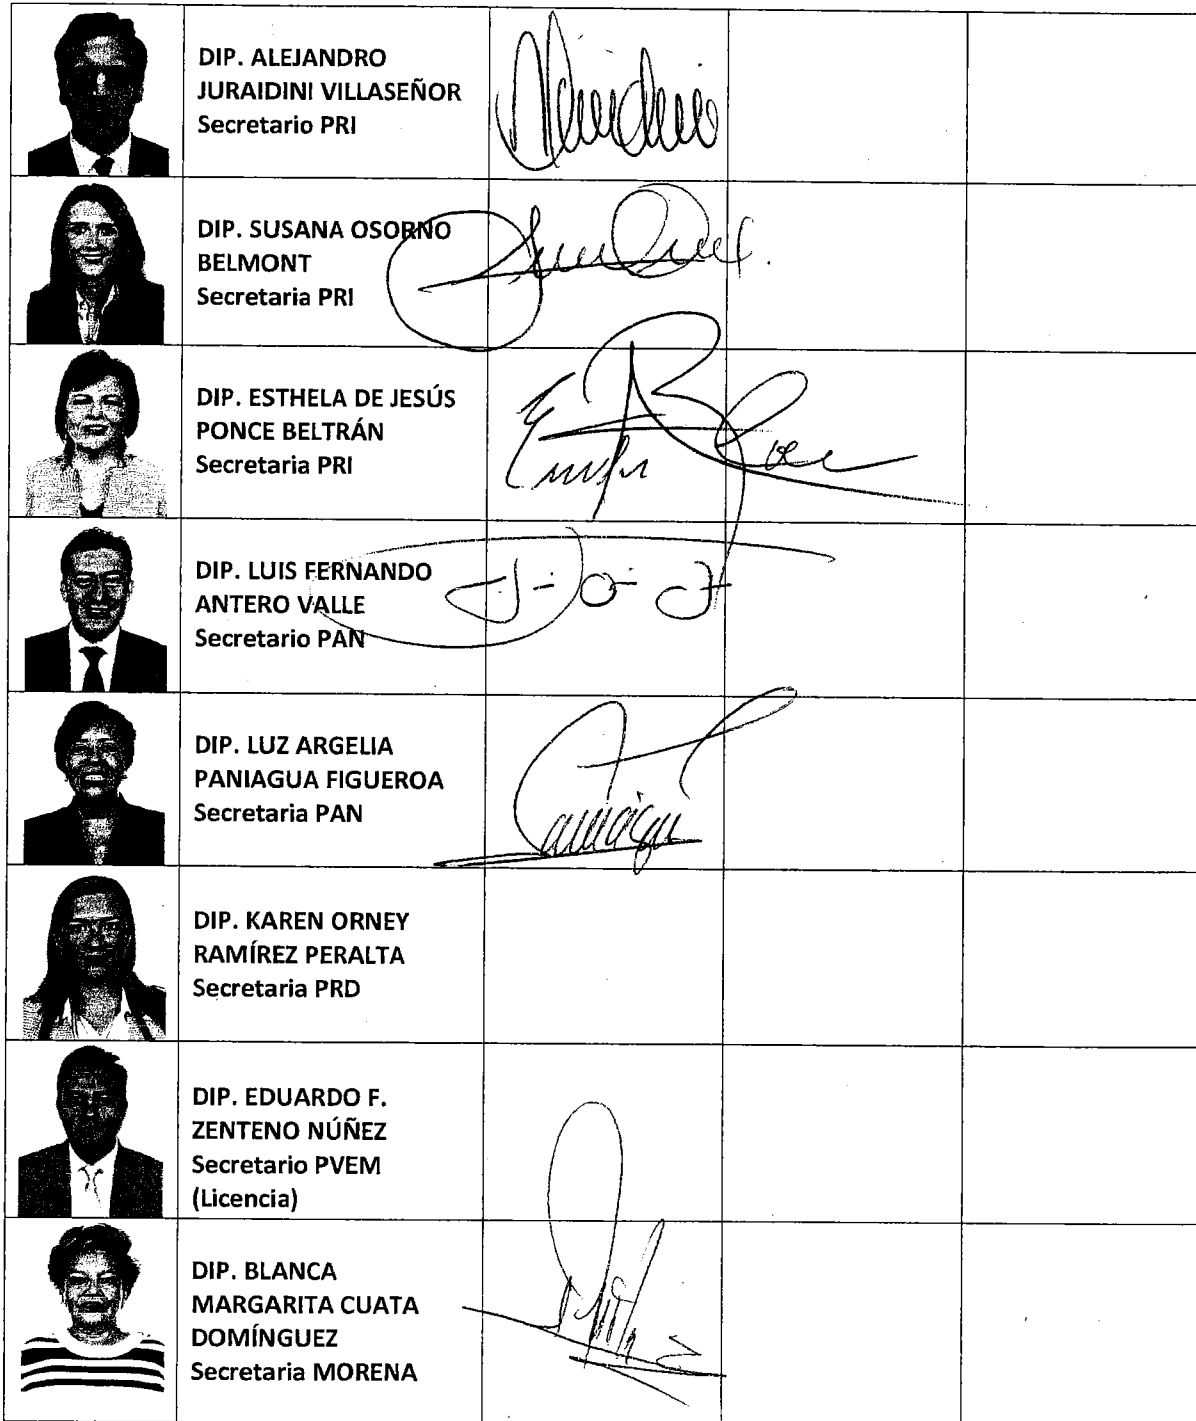 DIP. ALEJANDRO
JURAIDINI VILLASEÑOR
Secretario PRI
DIP. SUSANA OSORNO
BELMONT
Secretaria PRI
DIP. ESTHELA DE JESÚS
PONCE BELTRÁN
Secretaria PRI
DIP. LUIS FERNANDO
ANTERO VALLE
Secretario PAN
DIP. LUZ ARGELIA
PANIAGUA FIGUEROA
Secretaria PAN
DIP. KAREN ORNEY
RAMÍREZ PERALTA
Secretaria PRD
DIP. EDUARDO F.
ZENTENO NÚÑEZ
Secretario PVEM
(Licencia)
DIP. BLANCA
MARGARITA CUATA
DOMÍNGUEZ
Secretaria MORENA